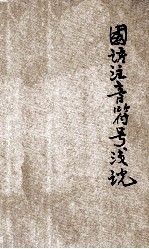 國語注音符号淺說